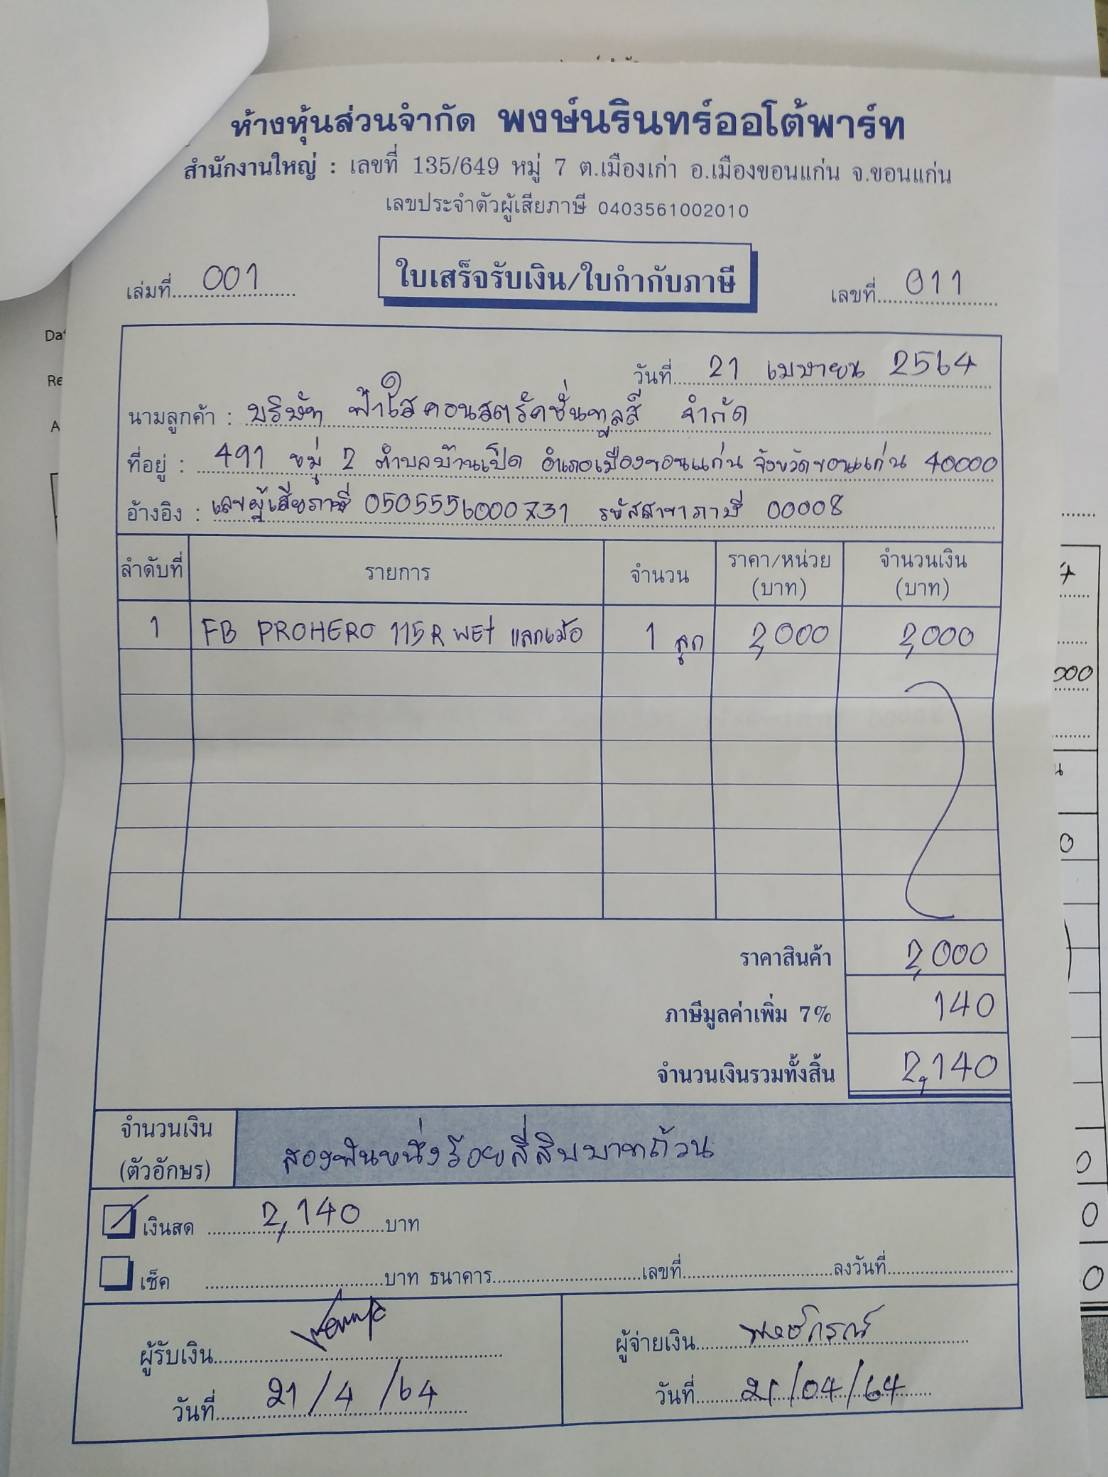 ห้างหุ้นส่วนจำกัด พงษ์นรินทร์ออโต้พาร์ท
สำนักงานใหญ่ : เลขที่ 135/649 หมู่ 7 ต.เมืองเก่า อ.เมืองขอนแก่น จ.ขอนแก่น
เลขประจำตัวผู้เสียภาษี 0403561002010
เล่มที่ 001 ใบเสร็จรับเงิน/ใบกำกับภาษี เลขที่ 011
วันที่ 21 เมษายน 2564
นามลูกค้า : บริษัท ฟ้าใสคอนสตรัคชั่นทูลส์ จำกัด
ที่อยู่ : 491 หมู่ 2 ตำบลบ้านเป็ด อำเภอเมืองขอนแก่น จังหวัดขอนแก่น 40000
อ้างอิง : เลขผู้เสียภาษี 0505556000731 รหัสสาขาภาษี 00008
ลำดับที่ รายการ จำนวน ราคา/หน่วย (บาท) จำนวนเงิน (บาท)
1 FB PROHERO 115R WEt แลกหม้อ 1 ลูก 2,000 2,000
ราคาสินค้า 2,000
ภาษีมูลค่าเพิ่ม 7% 140
จำนวนเงินรวมทั้งสิ้น 2,140
จำนวนเงิน (ตัวอักษร) สองพันหนึ่งร้อยสี่สิบบาทถ้วน
เงินสด 2,140 บาท
เช็ค บาท ธนาคาร เลขที่ ลงวันที่
ผู้รับเงิน ผู้จ่ายเงิน
วันที่ 21/4/64 วันที่ 21/04/64